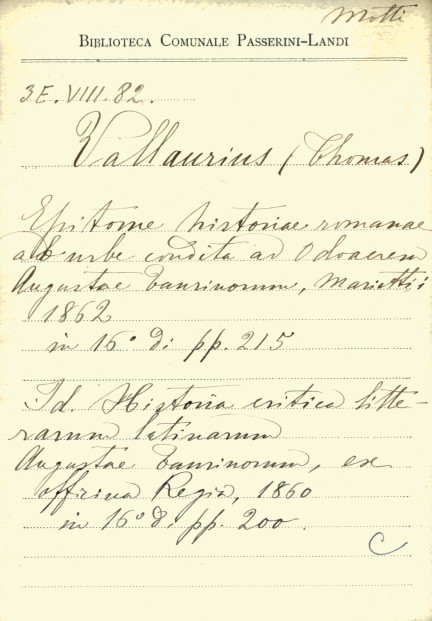 Motti
BIBLIOTECA COMUNALE PASSERINI-LANDI
3E.VIII.82.
Vallaurius (Thomas)
Epitome historiae romanae
ab urbe condita ad Odoacrem
Augustae Taurinorum, Marietti
1862
in 16° di pp. 215
Id. Historia critica litte-
rarum latinarum
Augustae Taurinorum, ex
officina Regia, 1860
in 16° di pp. 200.
C